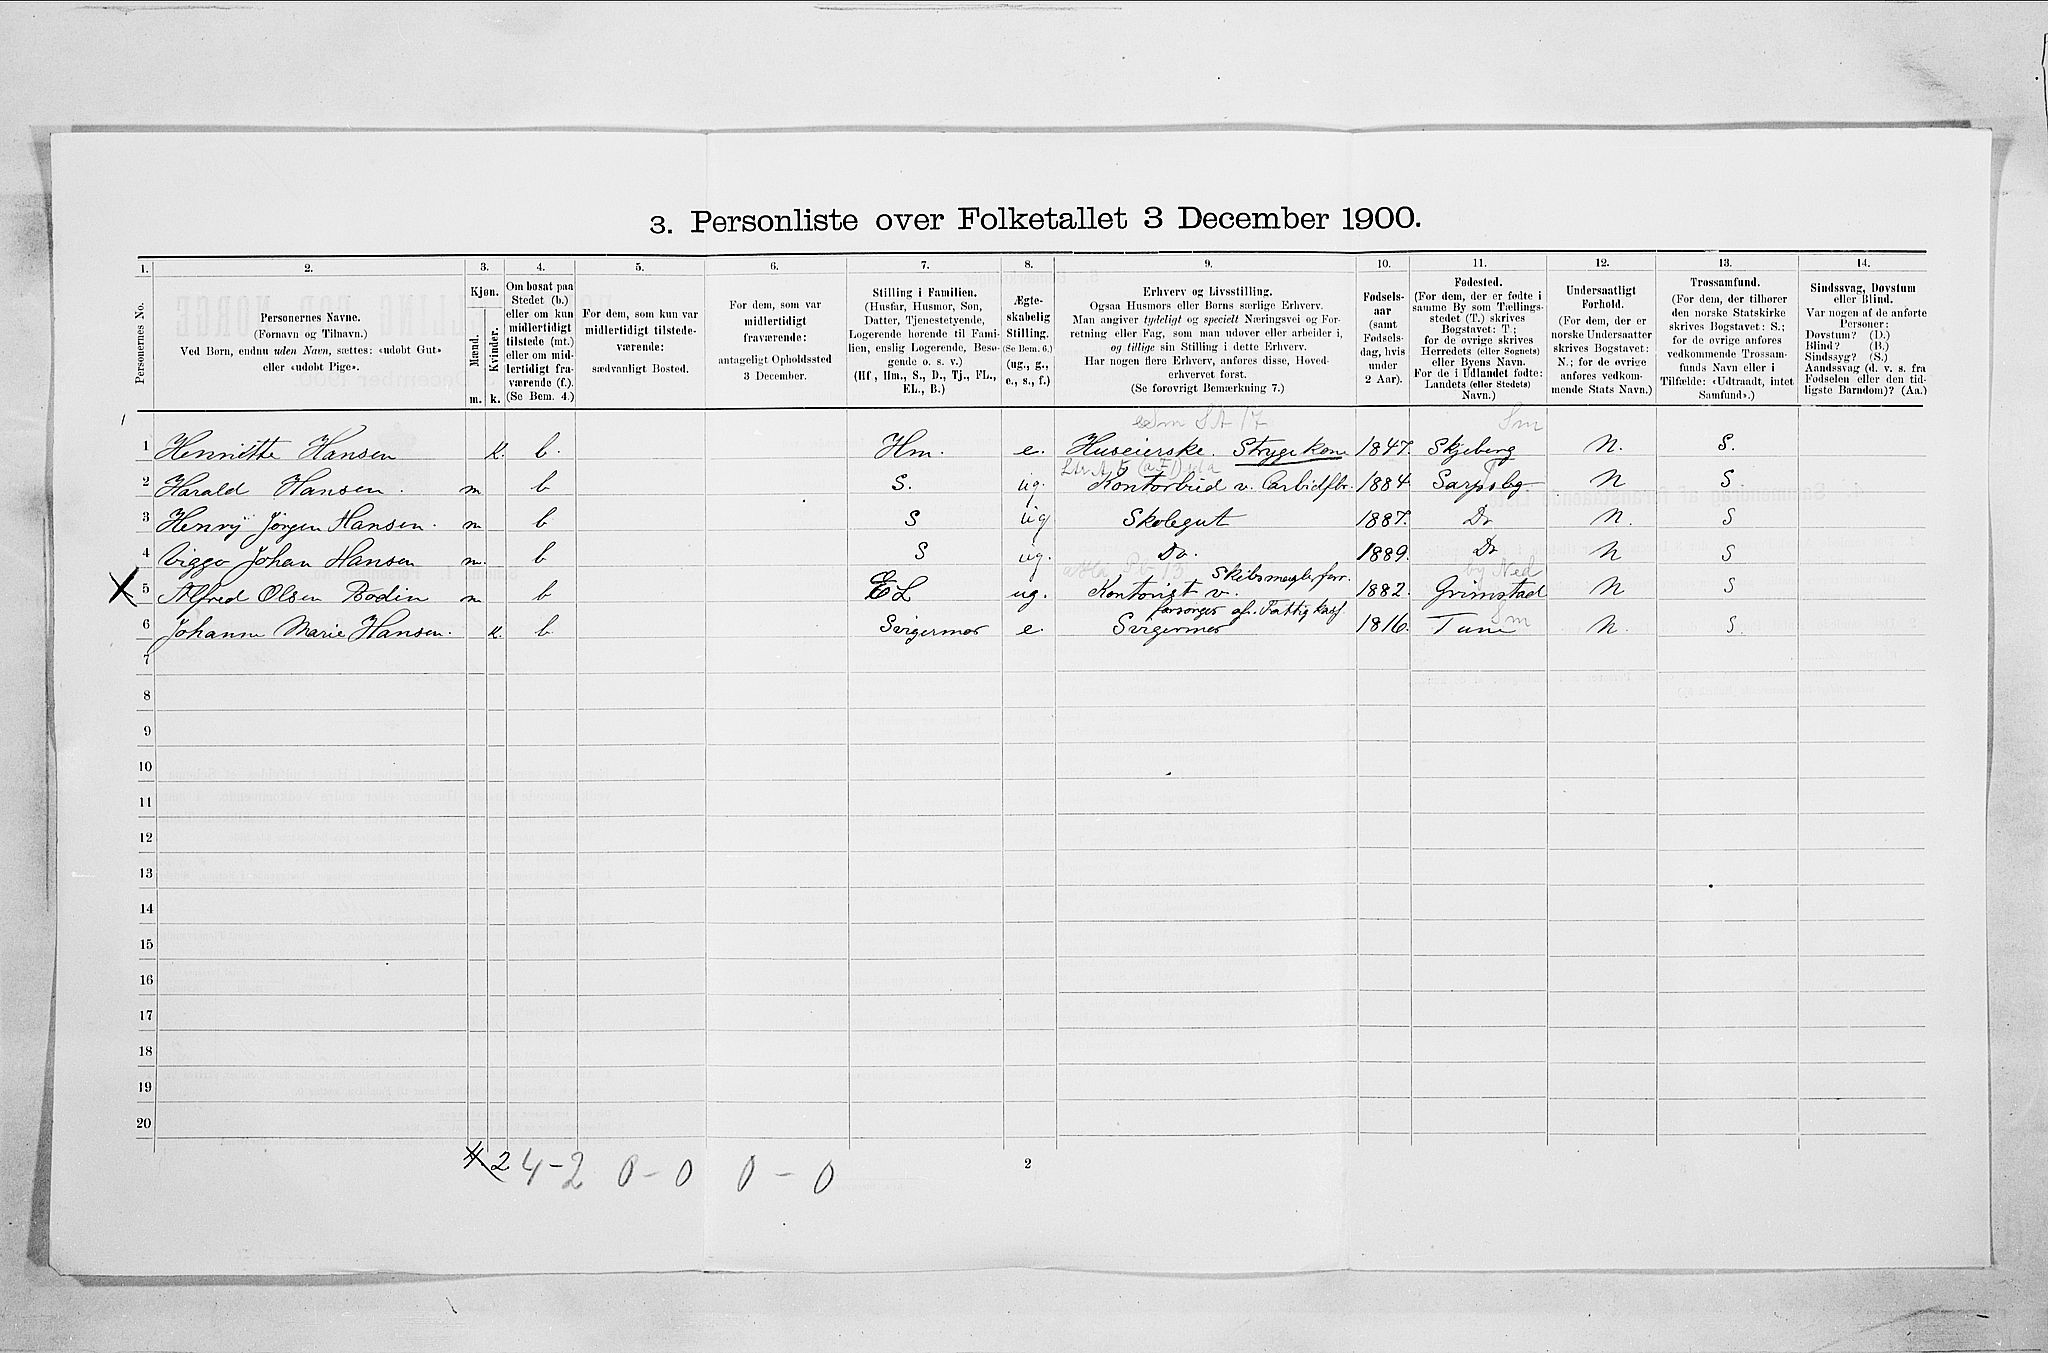 3. Personliste over Folketallet 3 December 1900.
1. 2. 3. 4. 5. 6. 7. 8. 9. 10. 11. 12. 13. 14.
Personernes No.
Personernes Navne.
(Fornavn og Tilnavn.)
Ved Børn, endnu uden Navn, sættes: «udøbt Gut»
eller «udøbt Pige».
Kjøn.
Mænd. Kvinder.
m. k.
Om bosat paa
Stedet (b.)
eller om kun
midlertidigt
tilstede (mt.)
eller om mid-
lertidigt fra-
værende (f.).
(Se Bem. 4.)
For dem, som kun var
midlertidigt tilstede-
værende:
sædvanligt Bosted.
For dem, som var
midlertidigt
fraværende:
antageligt Opholdssted
3 December.
Stilling i Familien.
(Husfar, Husmor, Søn,
Datter, Tjenestetyende,
Logerende hørende til Fami-
lien, enslig Logerende, Besø-
gende o. s. v.)
(Hf., Hm., S., D., Tj., FL.,
EL., B.)
Ægte-
skabelig
Stilling.
(Se Bem. 6.)
(ug., g.,
e., s., f.)
Erhverv og Livsstilling.
Ogsaa Husmors eller Børns særlige Erhverv.
Man angiver tydeligt og specielt Næringsvei og For-
retning eller Fag, som man udøver eller arbeider i,
og tillige sin Stilling i dette Erhverv.
Har nogen flere Erhverv, anføres disse, Hoved-
erhvervet først.
(Se forøvrigt Bemærkning 7.)
Fødsels-
aar
(samt
Fødsels-
dag, hvis
under
2 Aar).
Fødested.
(For dem, der er fødte i
samme By som Tællings-
stedet (T.) skrives
Bogstavet: T.;
for de øvrige skrives
Herredets (eller Sognets)
eller Byens Navn.
For de i Udlandet fødte:
Landets (eller Stedets)
Navn.)
Undersaatligt
Forhold.
(For dem, der er
norske Undersaatter
skrives Bogstavet:
N.; for de øvrige
anføres vedkom-
mende Stats Navn.)
Trossamfund.
(For dem, der tilhører
den norske Statskirke
skrives Bogstavet: S.;
for de øvrige anføres
vedkommende Trossam-
funds Navn eller i
Tilfælde: «Udtraadt, intet
Samfund».)
Sindssvag, Døvstum
eller Blind.
Var nogen af de anførte
Personer:
Døvstum? (D.)
Blind? (B.)
Sindssyg? (S.)
Aandssvag (d. v. s. fra
Fødselen eller den tid-
ligste Barndom)? (Aa.)
Sm
1 Henriette Hansen k. b. Hm. e. Huseierske. Strygekone 1847. Skjeberg N. S.
2 Harald Hansen. m b S. ug. Kontorbud v. Carbidfbr. 1884 Sarpsbg N S
3 Henry Jørgen Hansen. m b S ug Skolegut 1887. Do N. S
4 Viggo Johan Hansen m. b S ug. Do. 1889. Do N S
by Ned
Skibsmæglerforr.
5 Alfred Olsen Bodin m b EL ug. Kontorist v. 1882. Grimstad N S
forsørges af Fattigkasf Sm
6 Johanne Marie Hansen. k. b Svigermor e. Svigermor 1816. Tune N. S.
7
8
9
10
11
12
13
14
15
16
17
18
19
20
4 2 4-2 0-0 0-0
2